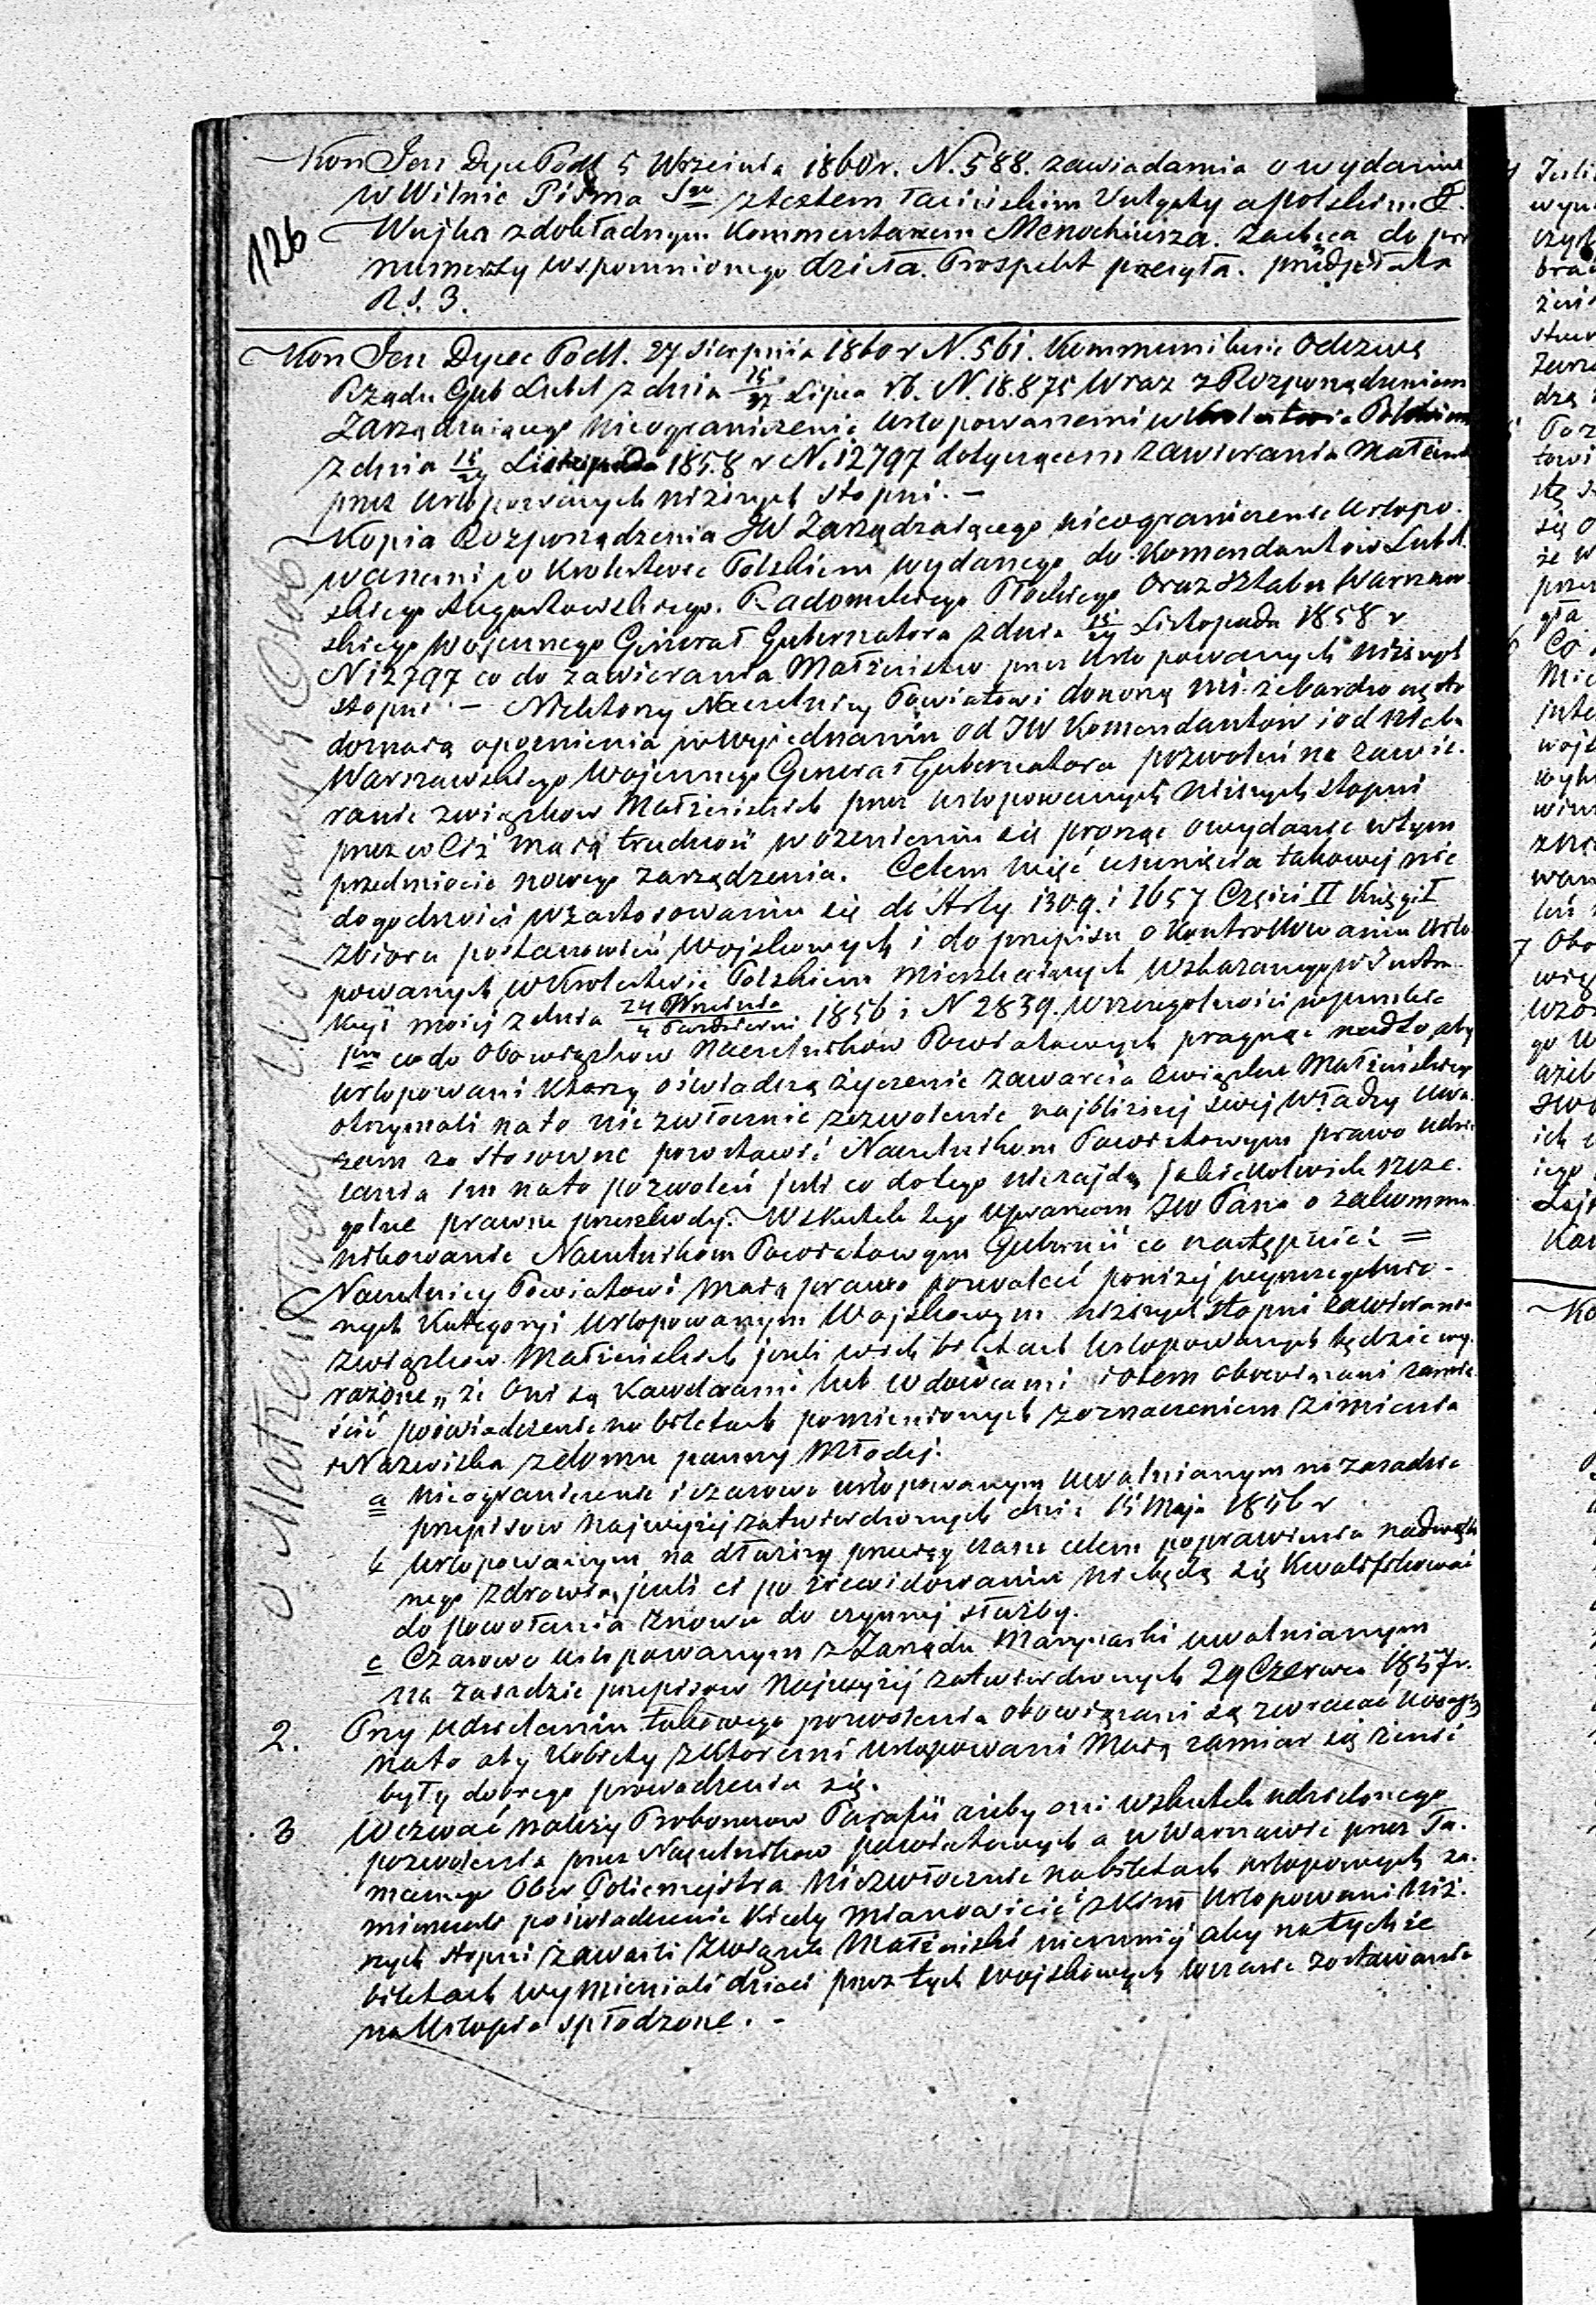 Kon Jen Dyec Podl 5 Września 1860 r. N. 588. zawiadamia o wydaniu
w Wilnie Pisma Sgo z textem łacińskim Vulgaty a polskim X.
126
Wujka z dokładnym Kommentarzem Menochiusza. zachęca do pre
numeraty wspomnionego dzieła. Prospekt przesyła. przedpłata
R.S. 3.
Kon Jen Dyec Podl. 27 Sierpnia 1860 r N. 561. Kommunikuje Odezwę
Rządu Gub Lubel z dnia 15/27 Lipca rb. N. 18.875 wraz z Rozporządzeniem
Zarządzaiącego nieograniczenie urlopowanemi w Krolestwie Polskiem
z dnia 15/27 Listopada 1858 r N. 12797 dotyczącem zawierania Małżeństw
przez urlopowanych niższych stopni. -
Kopia Rozporządzenia JW Zarządzaiącego nieograniczenie urlopo-
wanemi w Krolestwie Polskiem wydanego do Komendantów Lubel
skiego Augustowskiego. Radomskiego Płockiego oraz Sztabu Warszaw-
skiego Wojennego Generał Gubernatora z dnia 15/27 Listopada 1858 r
N 12797 co do zawierania Małżeństw przez urlopowanych niższych
stopni - Niektorzy Naczelnicy Powiatowi donoszą mi że bardzo często
doznaią opoznienia w wyjednaniu od JW Komendantow i od Sztabu
Warszawskiego Wojennego Generał Gubernatora pozwoleń na zawie-
ranie związkow Małżeńskich przez urlopowanych niższych stopni
przezco Ciż maią trudność w ożenieniu się prosząc o wydanie w tym
przedmiocie nowego zarządzenia. Celem więc usunięcia takowej nie
dogodności w zastosowaniu się do Arty 1309. i 1657 Części II Księgi I
zbioru postanowień wojskowych i do przepisu o Kontrollowaniu urlo
powanych w Krolestwie Polskiem mieszkaiących wskazanego w Instru
kcyi moiej z dnia 24 Września/4 Października 1856 i N 2839. w szczegolności w punkcie
1ym co do Obowiązkow Naczelnikow Powiatowych pragnąc nadto, aby
urlopowani ktorzy oświadczą życzenie zawarcia związku Małżeńskiego
otrzymali na to niezwłocznie zezwolenie najbliższej swej władzy uwa
żam za stosowne pozostawić Naczelnikom Powiatowym prawo udzie
lania im na to pozwoleń jeśli co do tego niezajdą jakiekolwiek szcze-
golne prawne przeszkody. Wskutek tego upraszam JW Pana o zakommu
nikowanie Naczelnikom Powiatowym Gubernii co następuie: =
Naczelnicy Powiatowi maią prawo pozwalać poniżej wyszczegolnio-
nych kategoryi urlopowanym Wojskowym niższych stopni zawierania
związkow Małżeńskich jeśli w ich biletach urlopowanych będzie wy-
rażone „że oni są Kawalerami lub wdowcami i o tem obowiązani zamie-
ścić poświadczenie na biletach pomienionych z oznaczeniem z imienia
i Nazwiska z domu panny Młodej.
a nieograniczenie i czasowo urlopowanym uwalnianym na zasadzie
przepisow Najwyżej zatwierdzonych dnia 15 Maja 1856 r
b urlopowanym na dłuższy przeciąg czasu celem poprawienia nadwątlo
nego zdrowia, jeśli ci po zrewidowaniu nie będą się kwalifikować
do powołania znowu do czynnej służby.
c Czasowo urlopowanym z Zarządu Marynarki uwalnianym
na zasadzie przepisow Najwyżej zatwierdzonych 29 Czerwca 1857 r.
2. Przy udzielaniu takowego pozwolenia obowiązani są zwracać uwagę
na to aby Kobiety z ktoremi urlopowani maią zamiar się żenić
były dobrego prowadzenia się.
3 Wezwać należy Proboszczow Parafii ażeby oni wskutek udzielonego
pozwolenia przez Naczelnikow powiatowych a w Warszawie przez Ta-
mecznego Ober Policmejstra niezwłocznie na biletach urlopowych za-
mieszczali poświadczenie kiedy mianowicie i z kim urlopowani niż-
szych stopni zawarli związek Małżeński niemniej aby na tychże
biletach wymieniali dzieci przez tych wojskowych w czasie zostawania
na urlopie spłodzone. -
o Małżeństwach Urlopowanych Osob